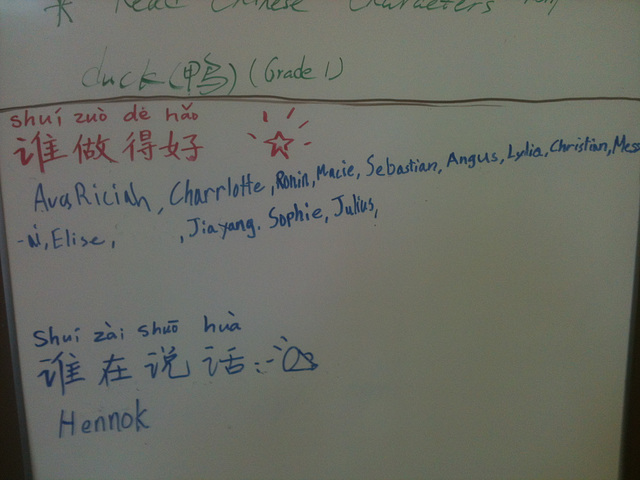 * Read Chinese Characters
duck (鸭) (Grade 1)
shuí zuò dé hǎo
谁做得好
Ava, Riciah, Charrlotte, Ronin, Macie, Sebastian, Angus, Lydia, Christian, Mess
-i, Elise, , Jiayang. Sophie, Julius,
Shuí zài shuō huà
谁在说话:
Hennok